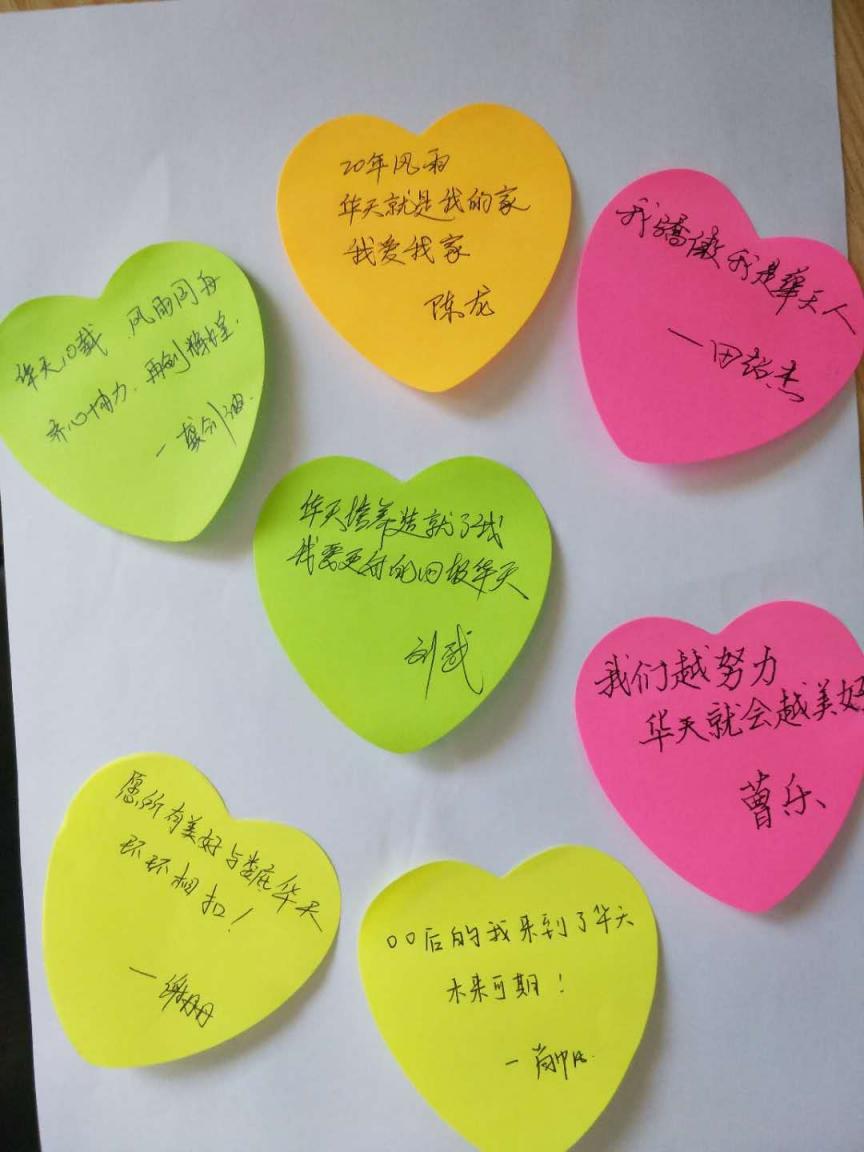 20年风雨
华天就是我的家
我爱我家
陈龙
我骄傲我是华天人
一田
华天10载.风雨同舟
齐心协力.再创辉煌.
华天培养造就了我
我要更好的回报华天
刘武
我们越努力
华天就会越美好
曹乐
愿所有美好与娄底华天
环环相扣！
一谢丹丹
00后的我来到了华天
未来可期！
一肖